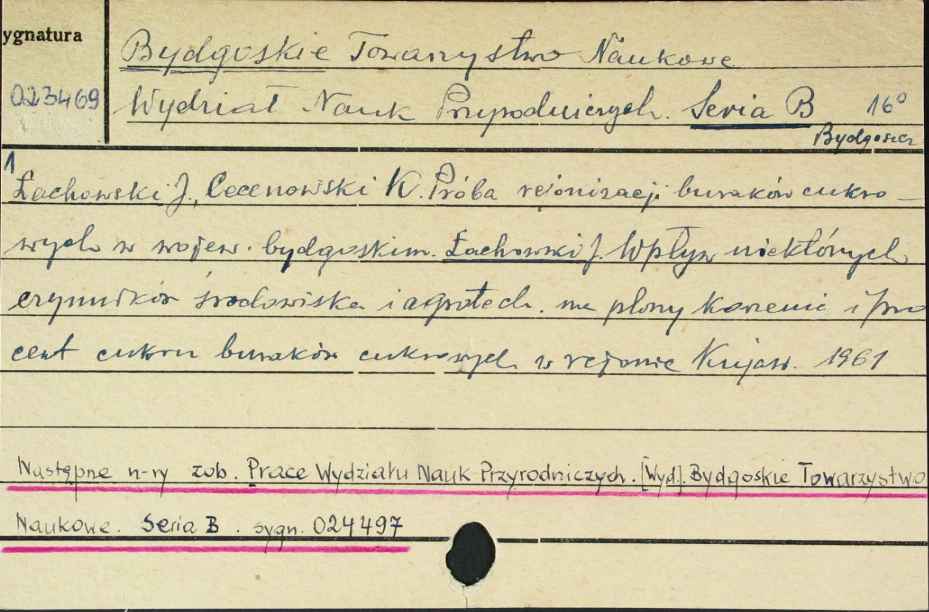 ygnatura
Bydgoskie Towarzystwo Naukowe
023469
Wydział Nauk Przyrodniczych. Seria B 16°
Bydgoszcz
1
Łachowski J., Cecenowski K. Próba rejonizacji buraków cukro-
wych w wojew. bydgoskim. Łachowski J. Wpływ niektórych
czynników środowiska i agrotech. na plony korzeni i pro
cent cukru buraków cukrowych w rejonie Kujaw. 1961
Następne n-ry zob. Prace Wydziału Nauk Przyrodniczych. [Wyd.] Bydgoskie Towarzystwo
Naukowe. Seria B. sygn. 024497